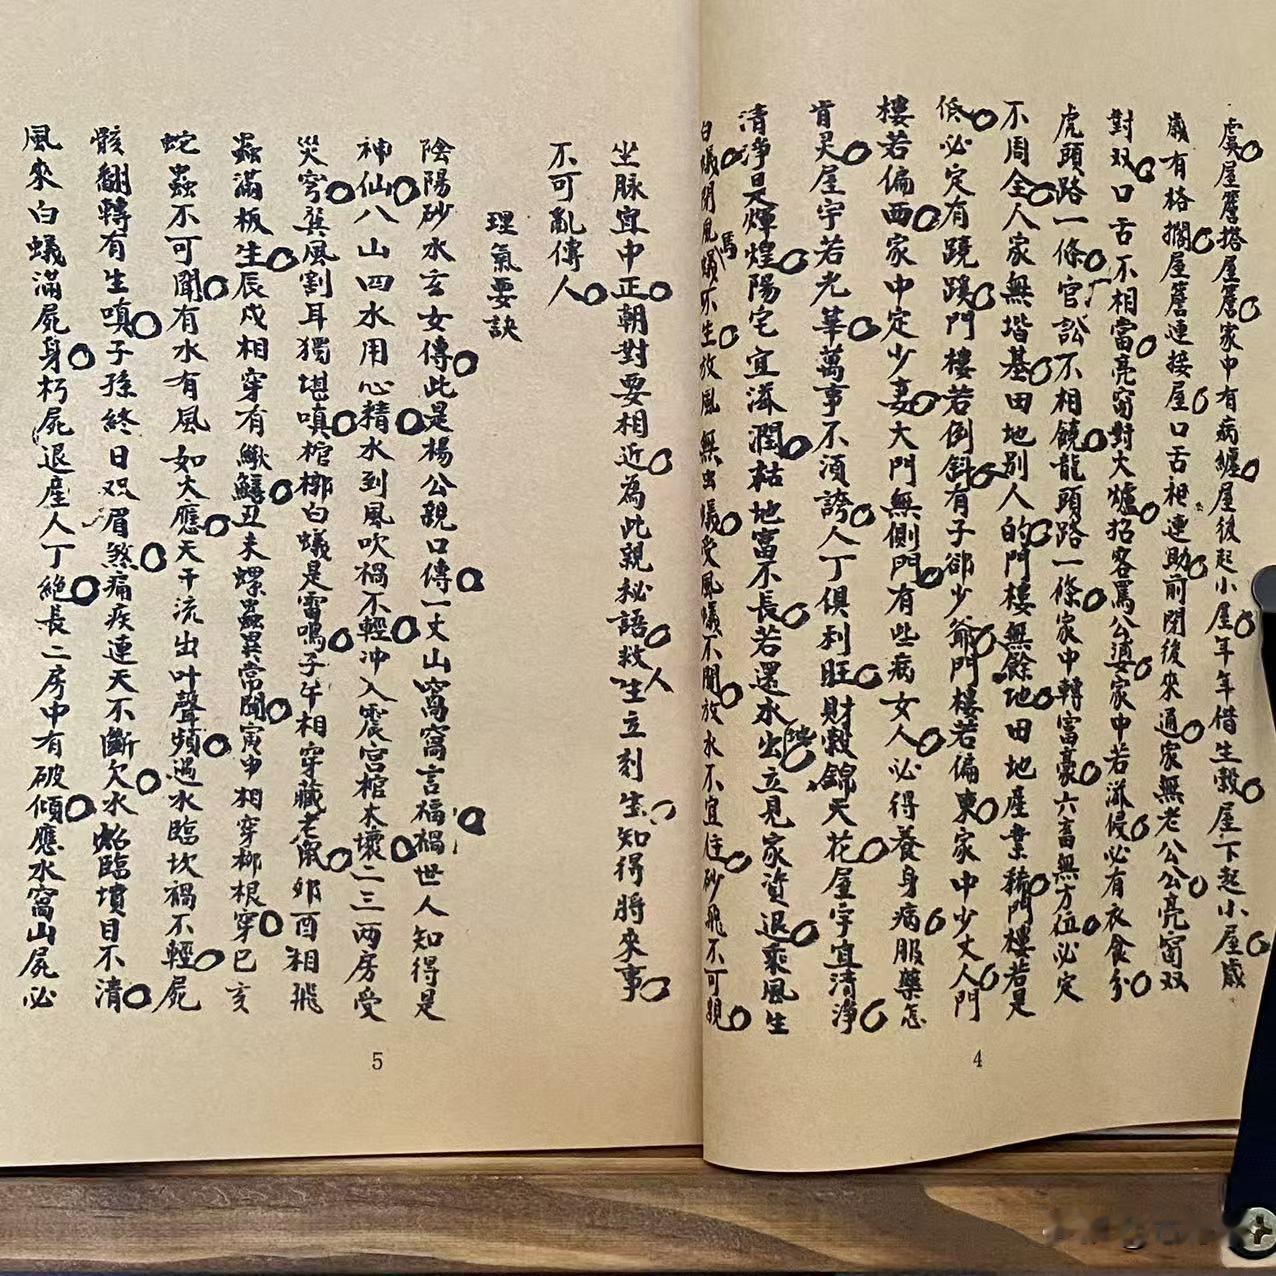 虞屋簷搭屋簷家中有病纏屋後起小屋年年借生穀屋下起小屋歲
歲有格擱屋簷連接屋口舌相連助前閉後來通家無老公公亮窗双
對双口舌不相當亮窗對大爐招客罵公婆家中若滋侵必有衣食分
虎頭路一條官訟不相饒龍頭路一條家中轉富豪六畜無方位必定
不周全人家無堦基田地別人的門樓無餘地田地產業稀門樓若是
低必定有蹺蹊門樓若倒斜有子卻少爺門樓若偏東家中少丈人門
樓若偏西家中定少妻大門無側門有些病女人必得養身病服藥怎
肯昊屋宇若光華萬事不須誇人丁俱利旺財穀錦天花屋宇宜清淨
清淨見煇煌陽宅宜滋潤枯地富不長若還水出立見家資退乘風生
白蟻閉風螞蟻不生放風無虫蟻受風蟻不聞放水不宜住砂飛不可親
4
坐脉宜中正朝對要相近為此親秘語救人生立刻生知得將來事
不可亂傳人
理氣要訣
陰陽砂水玄女傳此是楊公親口傳一丈山窩窩言福禍世人知得是
神仙八山四水用心精水到風吹禍不輕冲入震宮棺木壞二三兩房受
災穹巽風割耳獨堪嗔棺槨白蟻是雷鳴子午相穿藏老鼠卯酉相飛
蟲滿板生辰戌相穿有鰍鱔丑未螺蟲異常聞寅申相穿柳根穿巳亥
蛇蟲不可聞有水有風如大應天干流出叶聲頻過水臨坎禍不輕屍
骸翻轉有生嗔子孫終日双眉煞痛疾連天不斷欠水臨墳目不清
風來白蟻滿屍身朽屍退產人丁絕長二房中有破傾應水窩山屍必
5